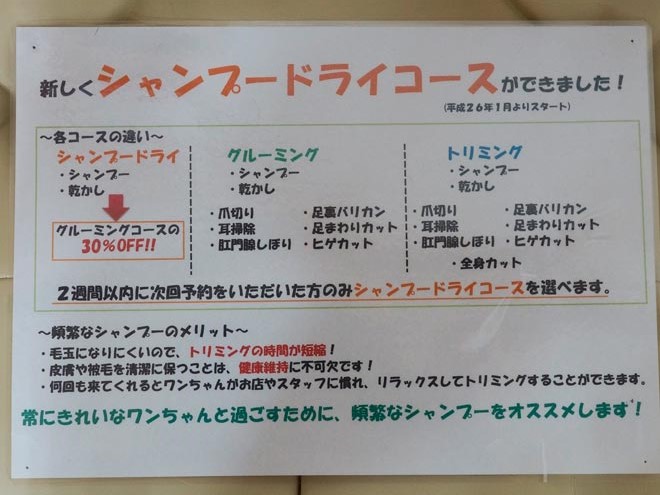 新しくシャンプードライコースができました！
(平成２６年１月よりスタート)
～各コースの違い～
シャンプードライ
・シャンプー
・乾かし
グルーミングコースの
３０％OFF!!
グルーミング
・シャンプー
・乾かし
・爪切り ・足裏バリカン
・耳掃除 ・足まわりカット
・肛門腺しぼり ・ヒゲカット
トリミング
・シャンプー
・乾かし
・爪切り ・足裏バリカン
・耳掃除 ・足まわりカット
・肛門腺しぼり ・ヒゲカット
・全身カット
２週間以内に次回予約をいただいた方のみシャンプードライコースを選べます。
～頻繁なシャンプーのメリット～
・毛玉になりにくいので、トリミングの時間が短縮！
・皮膚や被毛を清潔に保つことは、健康維持に不可欠です！
・何回も来てくれるとワンちゃんがお店やスタッフに慣れ、リラックスしてトリミングすることができます。
常にきれいなワンちゃんと過ごすために、頻繁なシャンプーをオススメします！